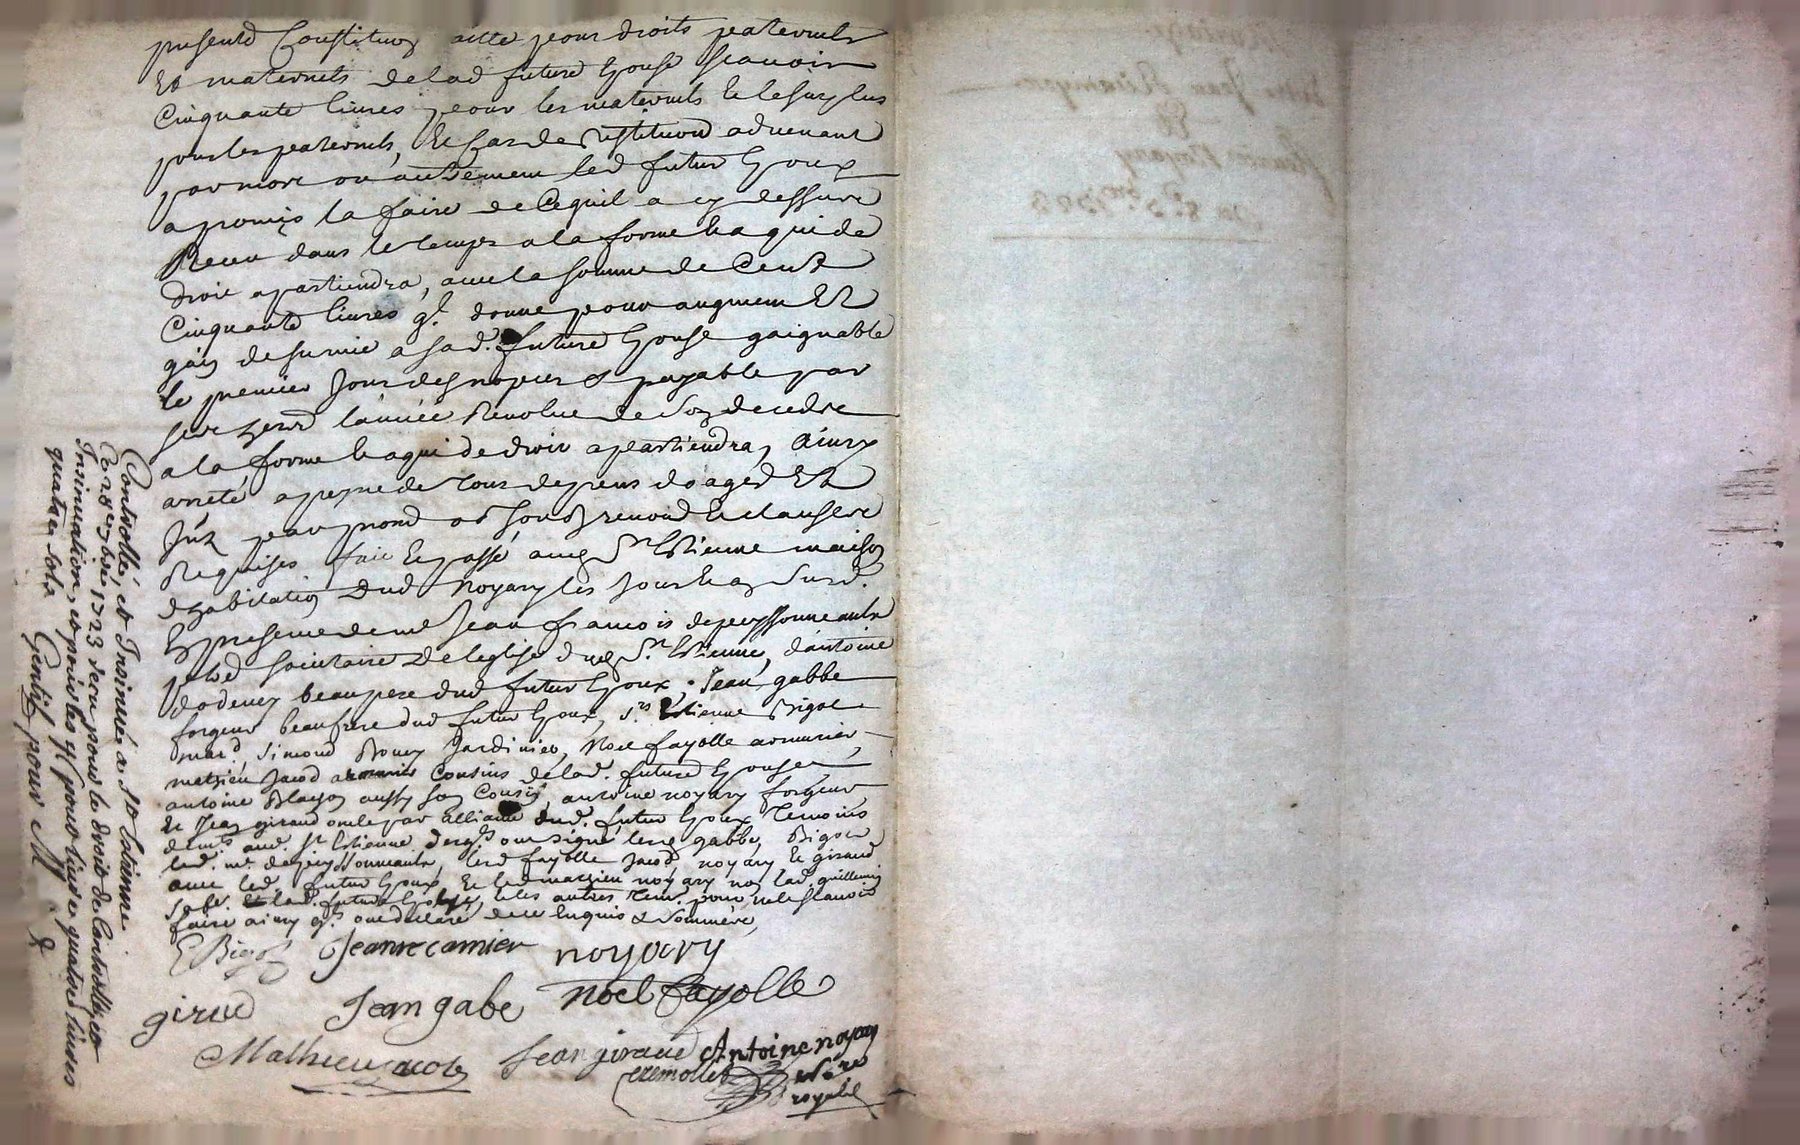 presente Constituon aitte pour droits paternels
Et maternels de lad future Epouse scauoir
Cinquante liures pour les maternels Et le surplus
pour les paternels, Et Cas de restituon aduenant
par mort ou autrement led futur Epoux
a promis la faire de Ce quil a cy dessus
Receu dans le temps a la forme Et a qui de
droit apartiendra, auec la somme de Cent
Cinquante liures ql. donne pour augment Et
gain de suruie a sad. future Epouse gaignable
le premier Jour des nopces & payable par
ses hers lannée Reuolue de son deceds
a la forme Et a qui de droit apartiendra, ainsy
arreté a peyne de tous depens domages Et
Jnts par prom ob soub renon Et clauses
Requises fait Et passé aud St Estienne maison
d'habitation dud Noyary les Jour Et an Susd.
En presence de me Jean francois depeyssonneaulx
pbre societaire de leglise dud St Estienne, d'antoine
dodeuey beaupere dud futur Epoux, Jean gabbe
forgeur beaufrere dud futur Epoux, srs Estienne Bigot
mard, Simond Bouey Jardinier, Noel fayolle armurier,
mathieu Jacod armurier Cousins de lad. future Epouse
antoine Blayson aussy son Cousin, antoine noyary forgeur
Et Jean giraud oncle par alliance dud. futur Epoux Temoins
demts aud. St Estienne desqls ont signé lesd gabbe, Bigot
led. me depeyssonneaulx, lesd fayolle Jacod, noyary Et giraud
auec led. futur Epoux Et led mathieu noyary non lad. guillemin
sa fe. Et lad. future Epouse, ny les autres Tem. pour ne le scauoir
faire ainsy qls. ont declaré de ce Enquis & Sommés,
E Bigot Jeanrecamier noyary
giraud Jean gabe noel fayolle
Mathieu jacod Jean giraud Antoine noyary
notre
royal
Controllé, et Insinué a St Estienne
Ce 18e xbre 1723 receu pour le droit de Controlle, et
Insinuation, et pour les yl pour liure quatre liures
quatre sols Gentil, pour Mr
Mariage
Entre Jean Recamyer
Et
noyary
du 8e xbre 1723